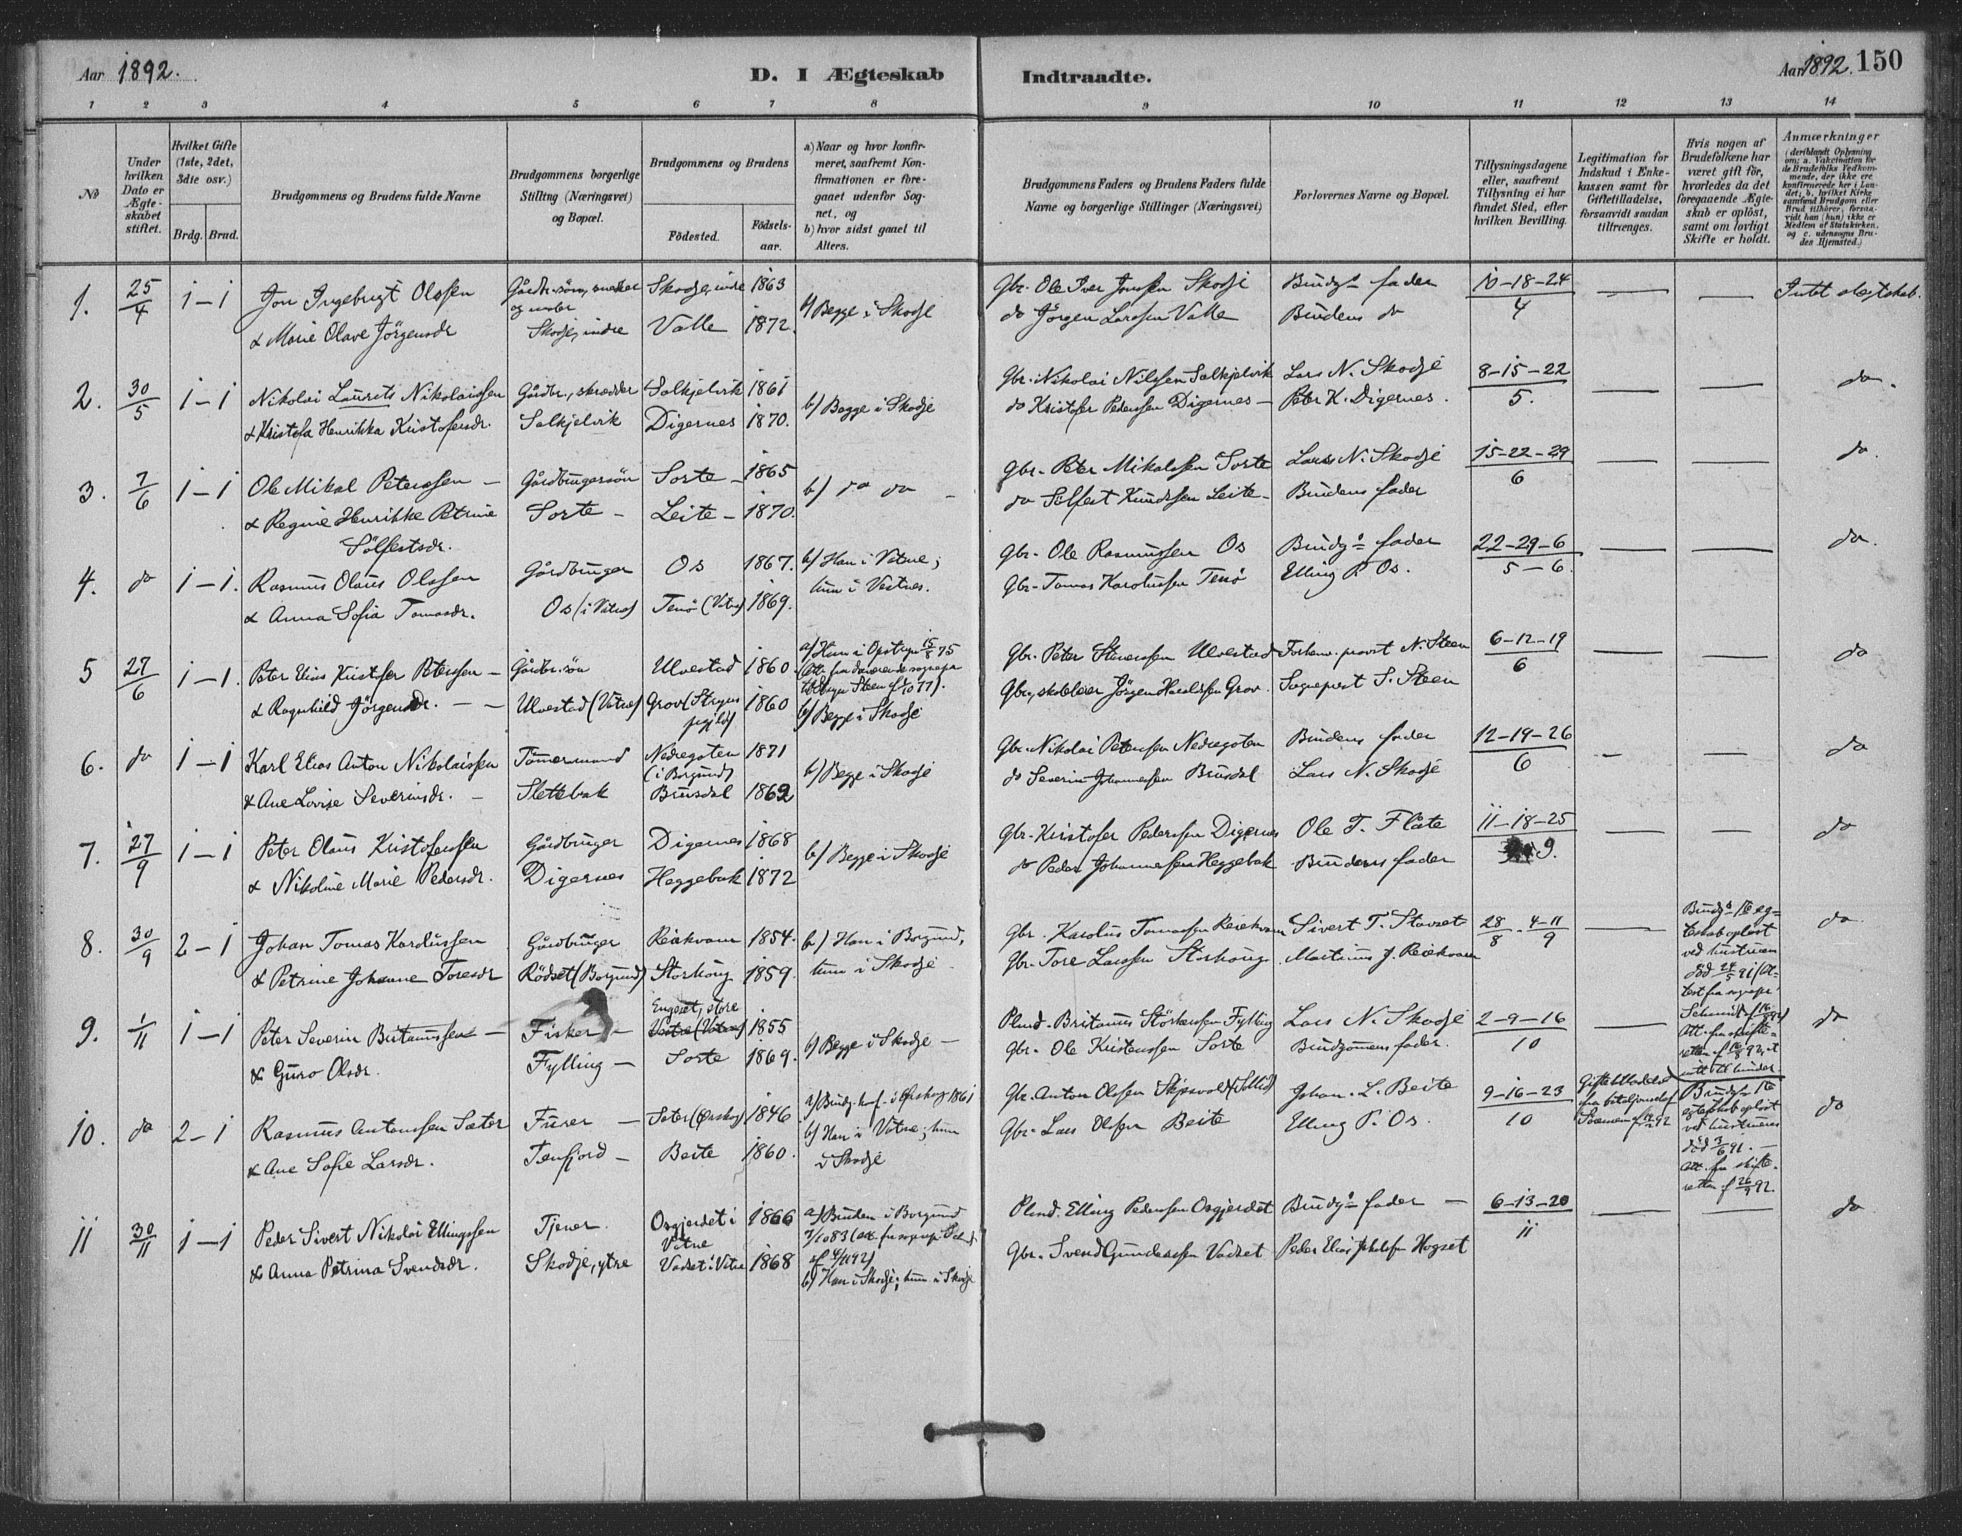 Aar 1892.
D. I Ægteskab
Indtraadte.
Aar 1892. 150
1 2 3 4 5 6 7 8 9 10 11 12 13 14
No
Under hvilken Dato er Ægteskabet stiftet.
Hvilket Gifte (1ste, 2det, 3die osv.)
Brdg. Brud.
Brudgommens og Brudens fulde Navne
Brudgommens borgerlige Stilling (Næringsvei) og Bopæl.
Brudgommens og Brudens
Fødested.
Fødselsaar.
a) Naar og hvor konfirmeret, saafremt Konfirmationen er foregaaet udenfor Sognet, og
b) hvor sidst gaaet til Alters.
Brudgommens Faders og Brudens Faders fulde Navne og borgerlige Stillinger (Næringsvei)
Forlovernes Navne og Bopæl.
Tillysningsdagene eller, saafremt Tillysning ei har fundet Sted, efter hvilken Bevilling.
Legitimation for Indskud i Enkekassen samt for Giftetilladelse, forsaavidt saadan tiltrænges.
Hvis nogen af Brudefolkene har været gift før, hvorledes da det foregaaende Ægteskab er opløst, samt om lovligt Skifte er holdt.
Anmærkninger
(deriblandt Oplysning om: a. Vakcination for de Brudefolks Vedkommende, der ikke ere konfirmerede her i Landet; b. hvilket Kirkesamfund Brudgom eller Brud tilhører, forsaavidt han (hun) ikke er Medlem af Statskirken, og c. udensogns Brudes Hjemsted.)
1. 25/4 1 – 1 Jon Ingebrigt Olssen Gårdbr.søn, snedker og maler Skodje, indre 1863 b) Begge i Skodje Gbr. Ole Iver Jonssen Skodje Brudg.s fader 10-18-24/4 Intet slegtskab.
& Marie Olave Jörgensdr Skodje, indre Valle 1872. do Jörgen Larssen Valle Brudens do
2. 30/5 1 – 1 Nikolai Laurits Nikolaissen Gårdbr., skrædder Solkjelvik 1861 b) Begge i Skodje Gbr. Nikolai Nilssen Solkjelvik Lars N. Skodje 8-15-22/5. do.
& Kristofa Henrikka Kristofersdr. Solkjelvik Digernes 1870. do Kristofer Pederssen Digernes – Peter K. Digernes.
3. 7/6 1 – 1 Ole Mikal Peterssen – Gårdbrugersön Sorte – 1865 b) do do – Gbr. Peter Mikalssen Sorte Lars N. Skodje 15-22-29/6 do.
& Regine Henrikke Petrine Sorte – Leite – 1870. do Sölfest Knudssen Leite – Brudens fader
Sölfestsdr.
4. do 1 – 1. Rasmus Olaus Olssen Gårdbruger Os 1867. b) Han i Vatne; Gbr. Ole Rasmussen Os Brudg.s fader 22-29-6/5 – 6. do.
& Anna Sofia Tomasdr. Os (i Vatne) Tenö (Vatne) 1869. hun i Vestnes. Gbr. Tomas Karolussen Tenö Elling P. Os.
5 27/6 1 – 1. Peter Elias Kristofer Peterssen – Gårdbr.sön Ulvestad 1860. a) Hun i Opstryn 15/8 75 Gbr. Peter Ulvestad provst N. Steen 6-12-19/6 do
& Ragnhild Jörgensdr. – – Ulvestad (Vatne) Grov (Stryns 1860 b) Begge i Skodje Gbr., skolelærer Jörgen Haraldssen Grov. Sognepræst S. Steen
6. do 1 – 1 Karl Elias Anton Nikolaissen Tömermand Nedregoten (i Borgund) 1871 b) Begge i Skodje Gbr. Nikolai Peterssen Nedregoten Brudens fader 12-19-26/6 do
& Ane Lovise Severinsdr. – Slettebak Brusdal 1862 do Severin Johannessen Brusdal Lars N. Skodje
7. 27/9 1 – 1 Peter Olaus Kristoferssen Gårdbruger Digernes 1868 b) Begge i Skodje Gbr. Kristofer Pederssen Digernes Ole T. Flåte 11-18-25/9. do
& Nikoline Marie Pedersdr. Digernes Heggebak 1872 do Peder Johannessen Heggebak Brudens fader
8. 30/9 2 – 1 Johan Tomas Karolussen Gårdbruger Reiakvam 1854. b) Han i Borgund, Gbr. Karolus Tomassen Reiakvam Sivert T. Stavset 28/8 - 4-11/9 Brudg.s 1ste egteskab oplöst ved hustruen död 24/5 91 do
& Petrine Johanne Toresdr Rödset (Borgund) Storhaug 1859. hun i Skodje Gbr. Tore Larssen Storhaug Martinus J. Reiakvam
9. 1/11 1 – 1 Peter Severin Britanussen – Fisker – Engeset, store Vestre (Vatne) 1855 b) Begge i Skodje – Plmd. Britanus Fylling Lars N. Skodje 2-9-16/10 do
& Guro Olsdr. Fylling – Sorte 1869. Gbr. Ole Kristenssen Sorte Brudgommens fader.
10. do 2 – 1 Rasmus Antonssen Sæter Furer – Sæter (Ørskog) 1846 a) Brudg. konf. i Ørskog 1861 Gbr. Anton Olssen Johan. L. Beite 9-16-23/10 Brudg.s 1ste egteskab oplöst ved hustruens död 3/6 91. – Att. fra skifteretten af 26/9 92. do
& Ane Sofie Larsdr. Tenfjord – Beite 1860. b) Han i Vatne; hun i Skodje Gbr. Lars Olssen Beite Elling P. Os.
11 30/11 1 – 1 Peder Sivert Nikolai Ellingssen Tjener. Osgjerdet i Vatne 1866 a) Bruden i Borgund Plmd. Elling Pederssen Osgjerdet Brudg.s fader – 6-13-20/11 do
& Anna Petrina Svendsdr. Skodje, ytre Vadset i Vatne 1868 b) Han i Skodje; hun i Skodje Gbr. Svend Gunderssen Vadset Peder Elias Hogset